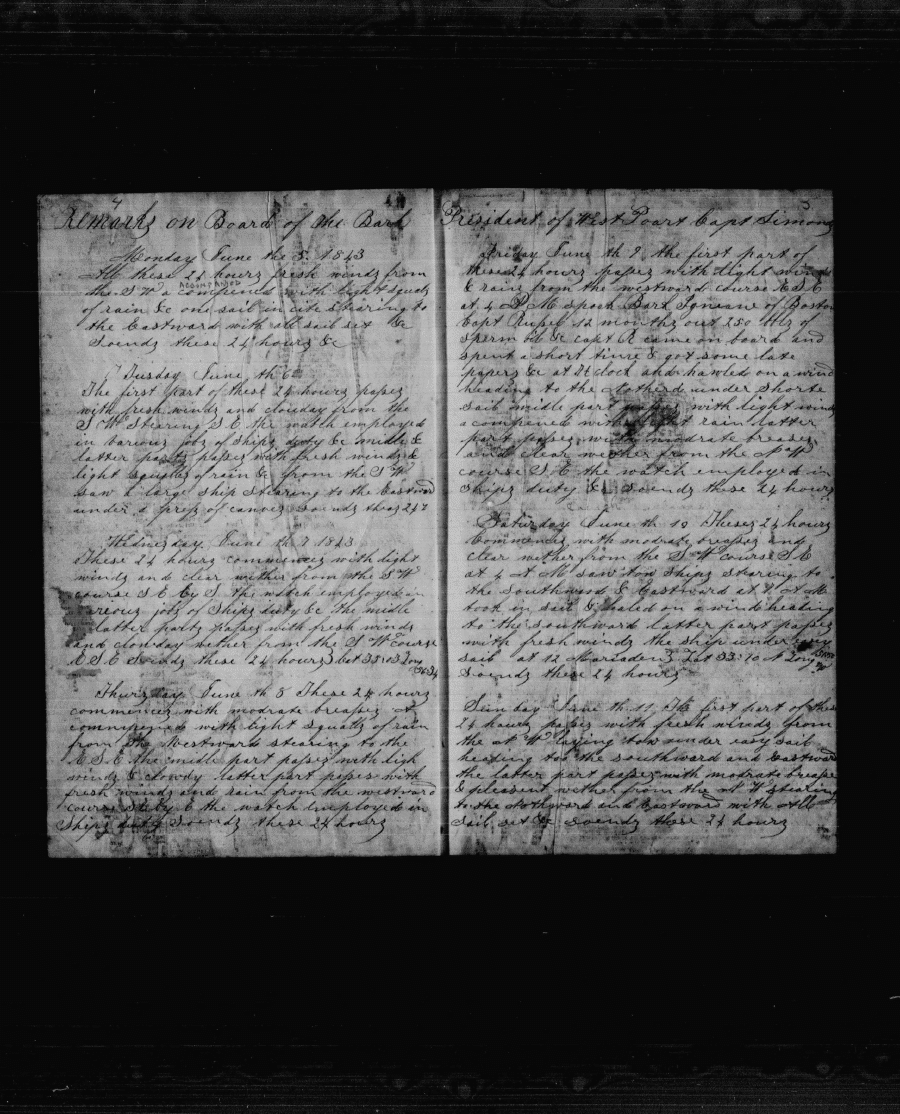 4
Remarks on Board of the Bark
Monday June the 5. 1843
All these 24 hours fresh winds from
ACCOMPANIED
the S W a compenied with light squalls
of rain &c one sail in cite stearing to
the Eastward with all sail set &c
So ends these 24 hours &c
Tusday June th 6
The first part of these 24 hours pases
with fresh winds and clouday from the
S W Stearing S.E. the watch employed
in various jobs of ships duty &c midle &
latter parts pases with fresh winds &
light squalls of rain &c from the S W
Saw a large ship stearing to the Eastward
under a press of canvas So ends these 24 h
Wednesday June th 7 1843
These 24 hours commences with light
winds and clear wether from the S W
course S E by S. the watch employed in
jobs of Ships duty &c the midle
latter parts pases with fresh winds
and clowday wether from the S W Course
E S E So ends these 24 hours Lat 35:03 Long
36:34
Thursday June th 8 These 24 hours
commences with modrate breases A
commpanied with light squalls of rain
from the Westward stearing to the
E S E the midle part pases with ligh
winds & clowdy latter part pases with
fresh winds and rain from the westward
course S E by E the watch Employed in
Ships duty So ends these 24 hours
5
President of West Poart Capt Simons
Friday June th 9 the first part of
these 24 hours pases with light winds
& rain from the westward course E S E
at 4 P M spoak Bark of Boston
Capt 12 months out 250 bbls of
Sperm Oil &c capt R came on board and
spent a short time & got some late
papers &c at clock hawled on a wind
heading to the Notherd under shorte
sail midle part pases with light winds
a compened with light rain latter
part pases with modrate breases
and clear wether from the N W
course S E the watch employed in
Ships duty &c So ends these 24 hours
Saturday June th 10 These 24 hours
Commences with modrate breases and
clear wether from the S W course S E
at 4 A M saw tow Ships stearing to
the southward & Eastward at 9. A M
took in sail & haled on a wind heading
to the southward latter part pases
with fresh winds the ship under easy
sail at 12 Lat 33:10 N Long
So ends these 24 hours
Sunday June th 11. The first part of these
24 hours pases with fresh winds from
the N W laying tow under easy sail
heading too the southward and Eastward
the latter part pases with modrate breases
& pleasent wether from the N W stearing
to the Nothward and Eastward with All
Sail set &c So ends these 24 hours